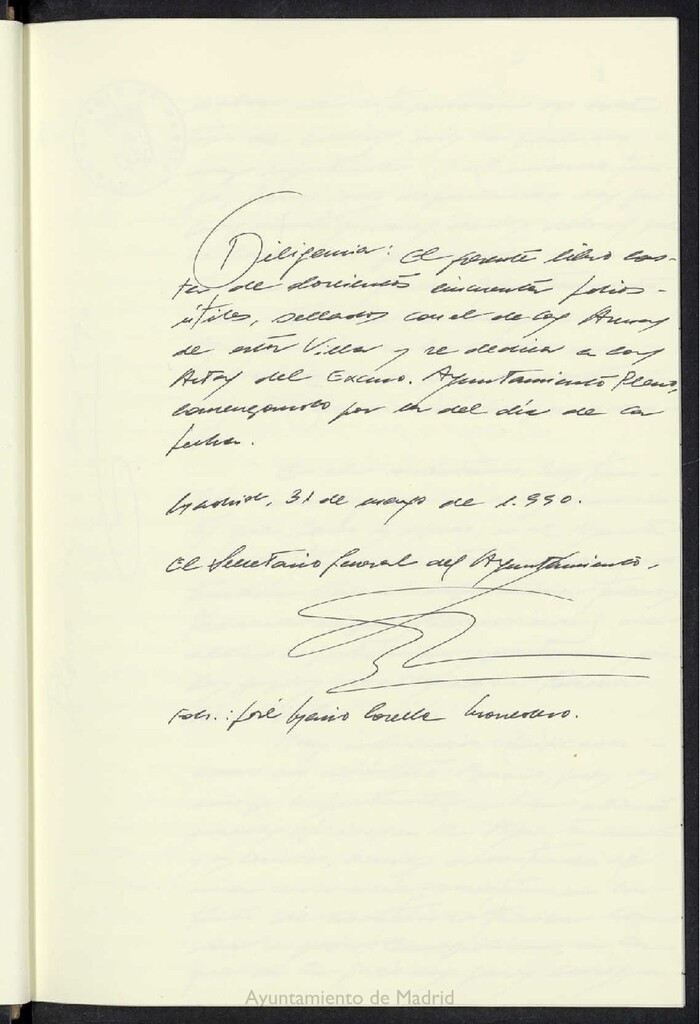 Diligencia: El presente libro cons-
ta de doscientos cincuenta folios -
útiles, sellados con el de las Armas
de esta Villa y se dedica a las
Actas del Excmo. Ayuntamiento Pleno,
comenzando por la del día de la
fecha.
Madrid, 31 de mayo de 1.990.
El Secretario General del Ayuntamiento,
Fdo.: José Mario Corella Monedero.
Ayuntamiento de Madrid